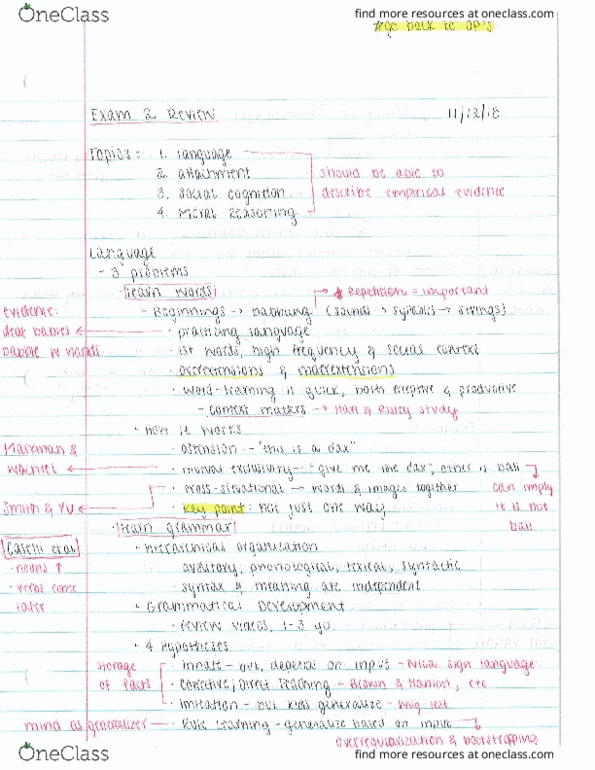 OneClass
find more resources at oneclass.com
#go back to OP's
Exam 2 Review 11/12/18
Topics: 1. Language
2. attachment
3. Social cognition
4. Moral Reasoning
should be able to
describe empirical evidence
Language
- 3 problems
Learn words
* Repetition = important
· Beginnings → babbling (sounds → syllables → strings)
evidence:
deaf babies
babble w hands
· practicing language
· 1st words, high frequency & social context
· overextensions &
· word-learning is quick, both & productive
- context matters → study
· How it works
· ostension - "this is a dax"
Markman &
Wachtel
· mutual exclusivity - "give me the dax", other is ball
can imply
it is not
ball
Smith & Yu
· cross-situational - words & images together
· key point: not just one way
Learn grammar
Caselli et al
· nouns ↑
· verbs come
later
· hierarchical organization
auditory, phonological, lexical, syntactic
· syntax & meaning are independent
· Grammatical Development
· review videos, 1-3 yo
· 4 Hypotheses
storage
of facts
· innate - but, depend on input - Nica. sign language
· Corrective/Direct Teaching - Brown & Hanlon, etc
· imitation - but kids generalize - wug test
mind as generalizer
· Rule Learning - generalize based on input
overregularization & bootstrapping
OneClass
find more resources at oneclass.com